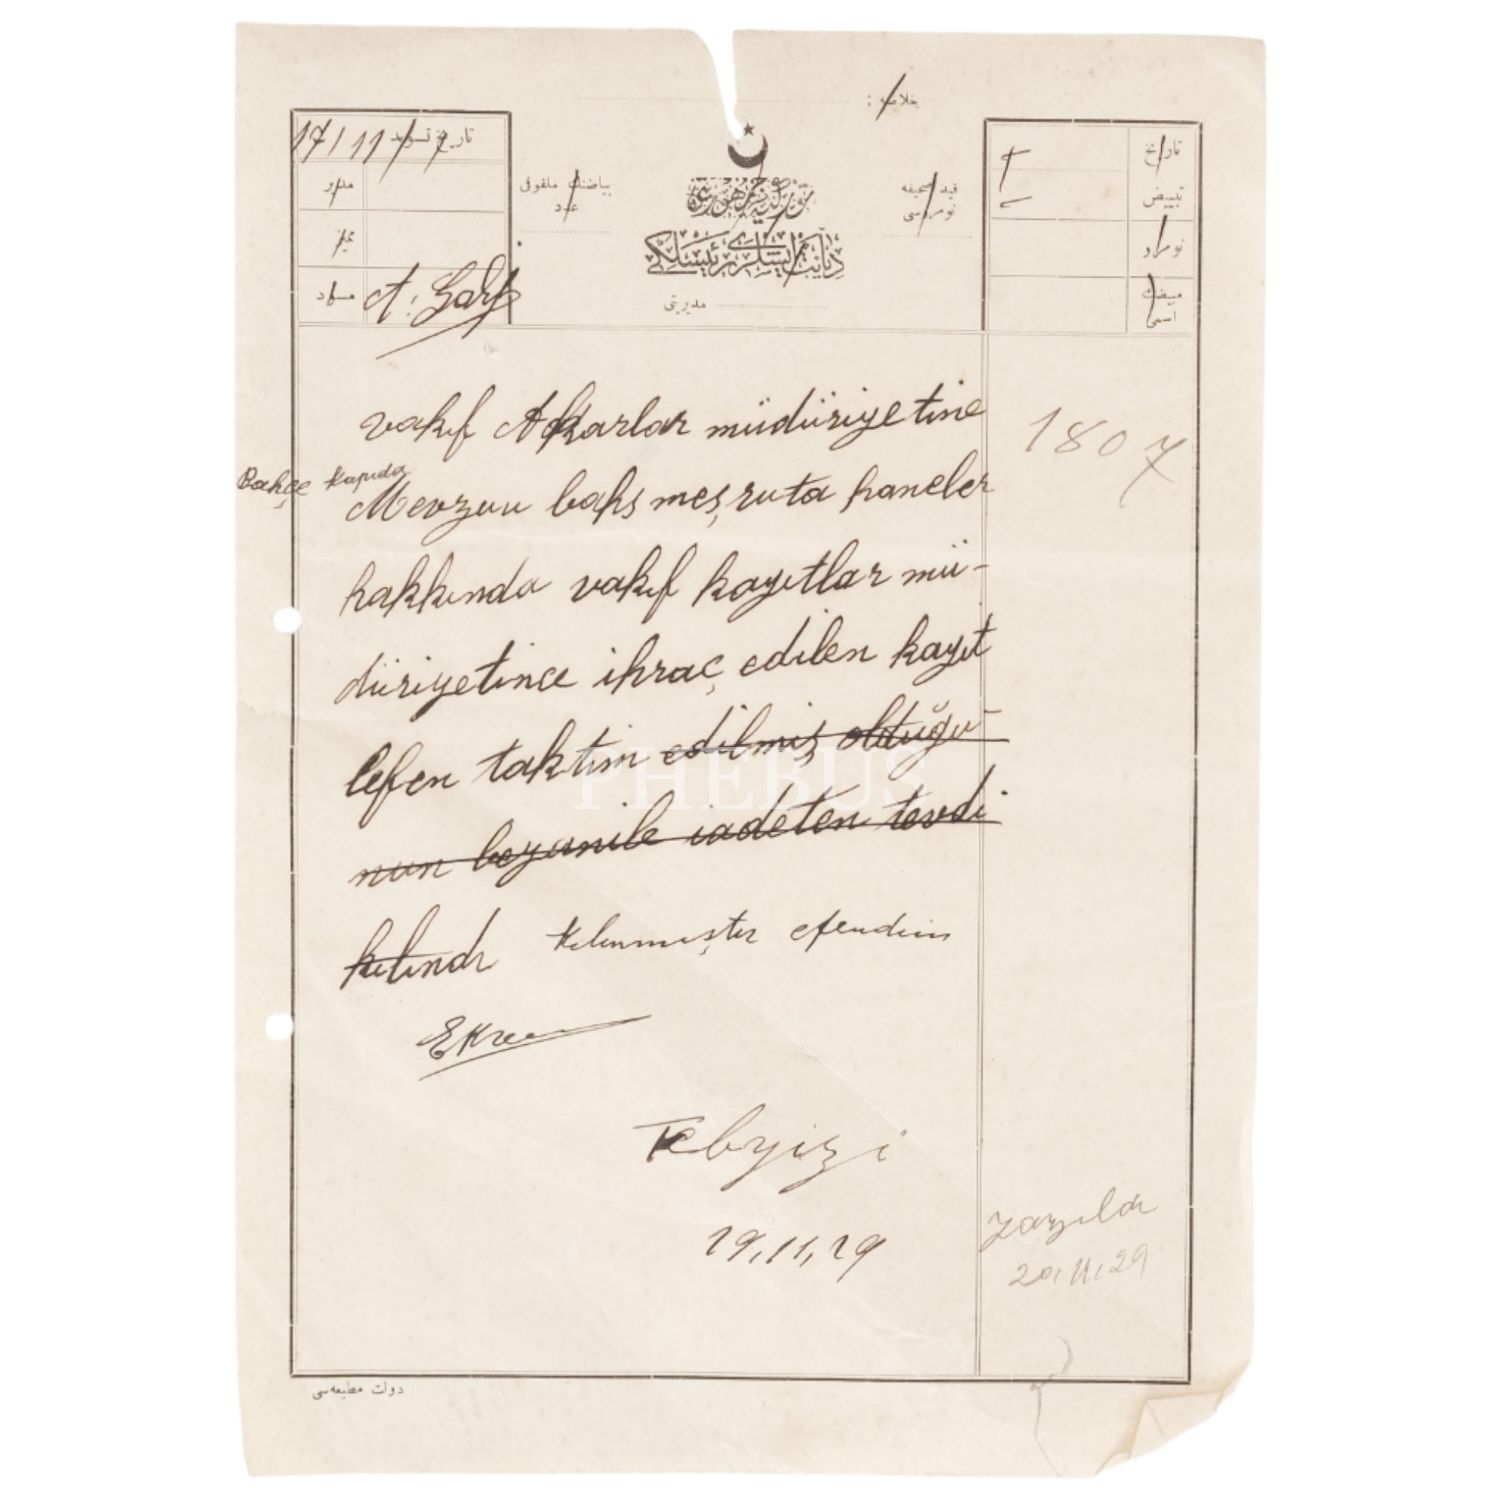 خلاصه :
17/11/
تاریخ تسوید
مدیر
ممیز
مسود
A. Şarf
بیاضنك ملفوفی
عدد
توركیه جمهوریتی
دیانت ایشلری رئیسلكی
مدیریتی
قید صحیفه
نومروسی
تاریخ
تبییض
نومرو
مبیضك
اسمی
vakıf Akarlar müdüriyetine
1807
Bahçe kapıda
Mevzuu bahs meşruta haneler
hakkında vakıf kayıtlar mü-
düriyetince ihraç edilen kayıt
lefen taktim edilmiş olduğu-
nun beyanile iadeten tevdi
kılındı kılınmıştır efendim
Ekrem
Tebyizi
19,11,29
yazıldı
20,11,29
دولت مطبعه‌سی
PHEBUS